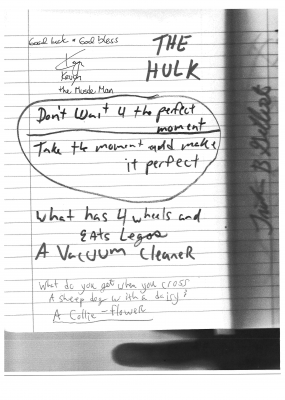 Good luck + God bless
THE
HULK
Keogh
the Movie Man
Don't Wait 4 the perfect
moment
Take the moment and make
it perfect
What has 4 wheels and
EAts Legos
A VACUUM CLEANER
What do you get when you cross
A sheep dog with a daisy?
A Collie-flower